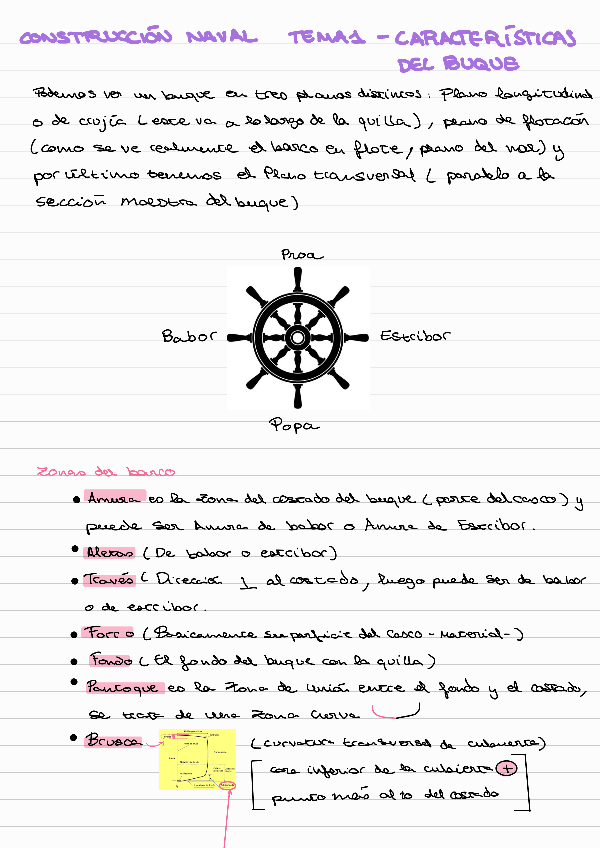 CONSTRUCCIÓN NAVAL TEMA 1 - CARACTERÍSTICAS
DEL BUQUE
Podemos ver un buque en tres planos distintos: Plano longitudinal
o de crujía (este va a lo largo de la quilla), plano de flotación
(como se ve realmente el barco en flote, plano del mar) y
por último tenemos el Plano transversal (paralelo a la
sección maestra del buque)
Proa
Babor
Estribor
Popa
Zonas del barco
• Amura es la zona del costado del buque (parte del casco) y
puede ser Amura de babor o Amura de Estribor.
• Aletas (De babor o estribor)
• Través (Dirección ⊥ al costado, luego puede ser de babor
o de estribor.
• Forro (Basicamente superficie del casco - Material-)
• Fondo (El fondo del buque con la quilla)
• Pantoque es la zona de unión entre el fondo y el costado,
se trata de una zona curva
• Brusca (curvatura transversal de cubierta)
cara inferior de la cubierta +
punto más alto del costado